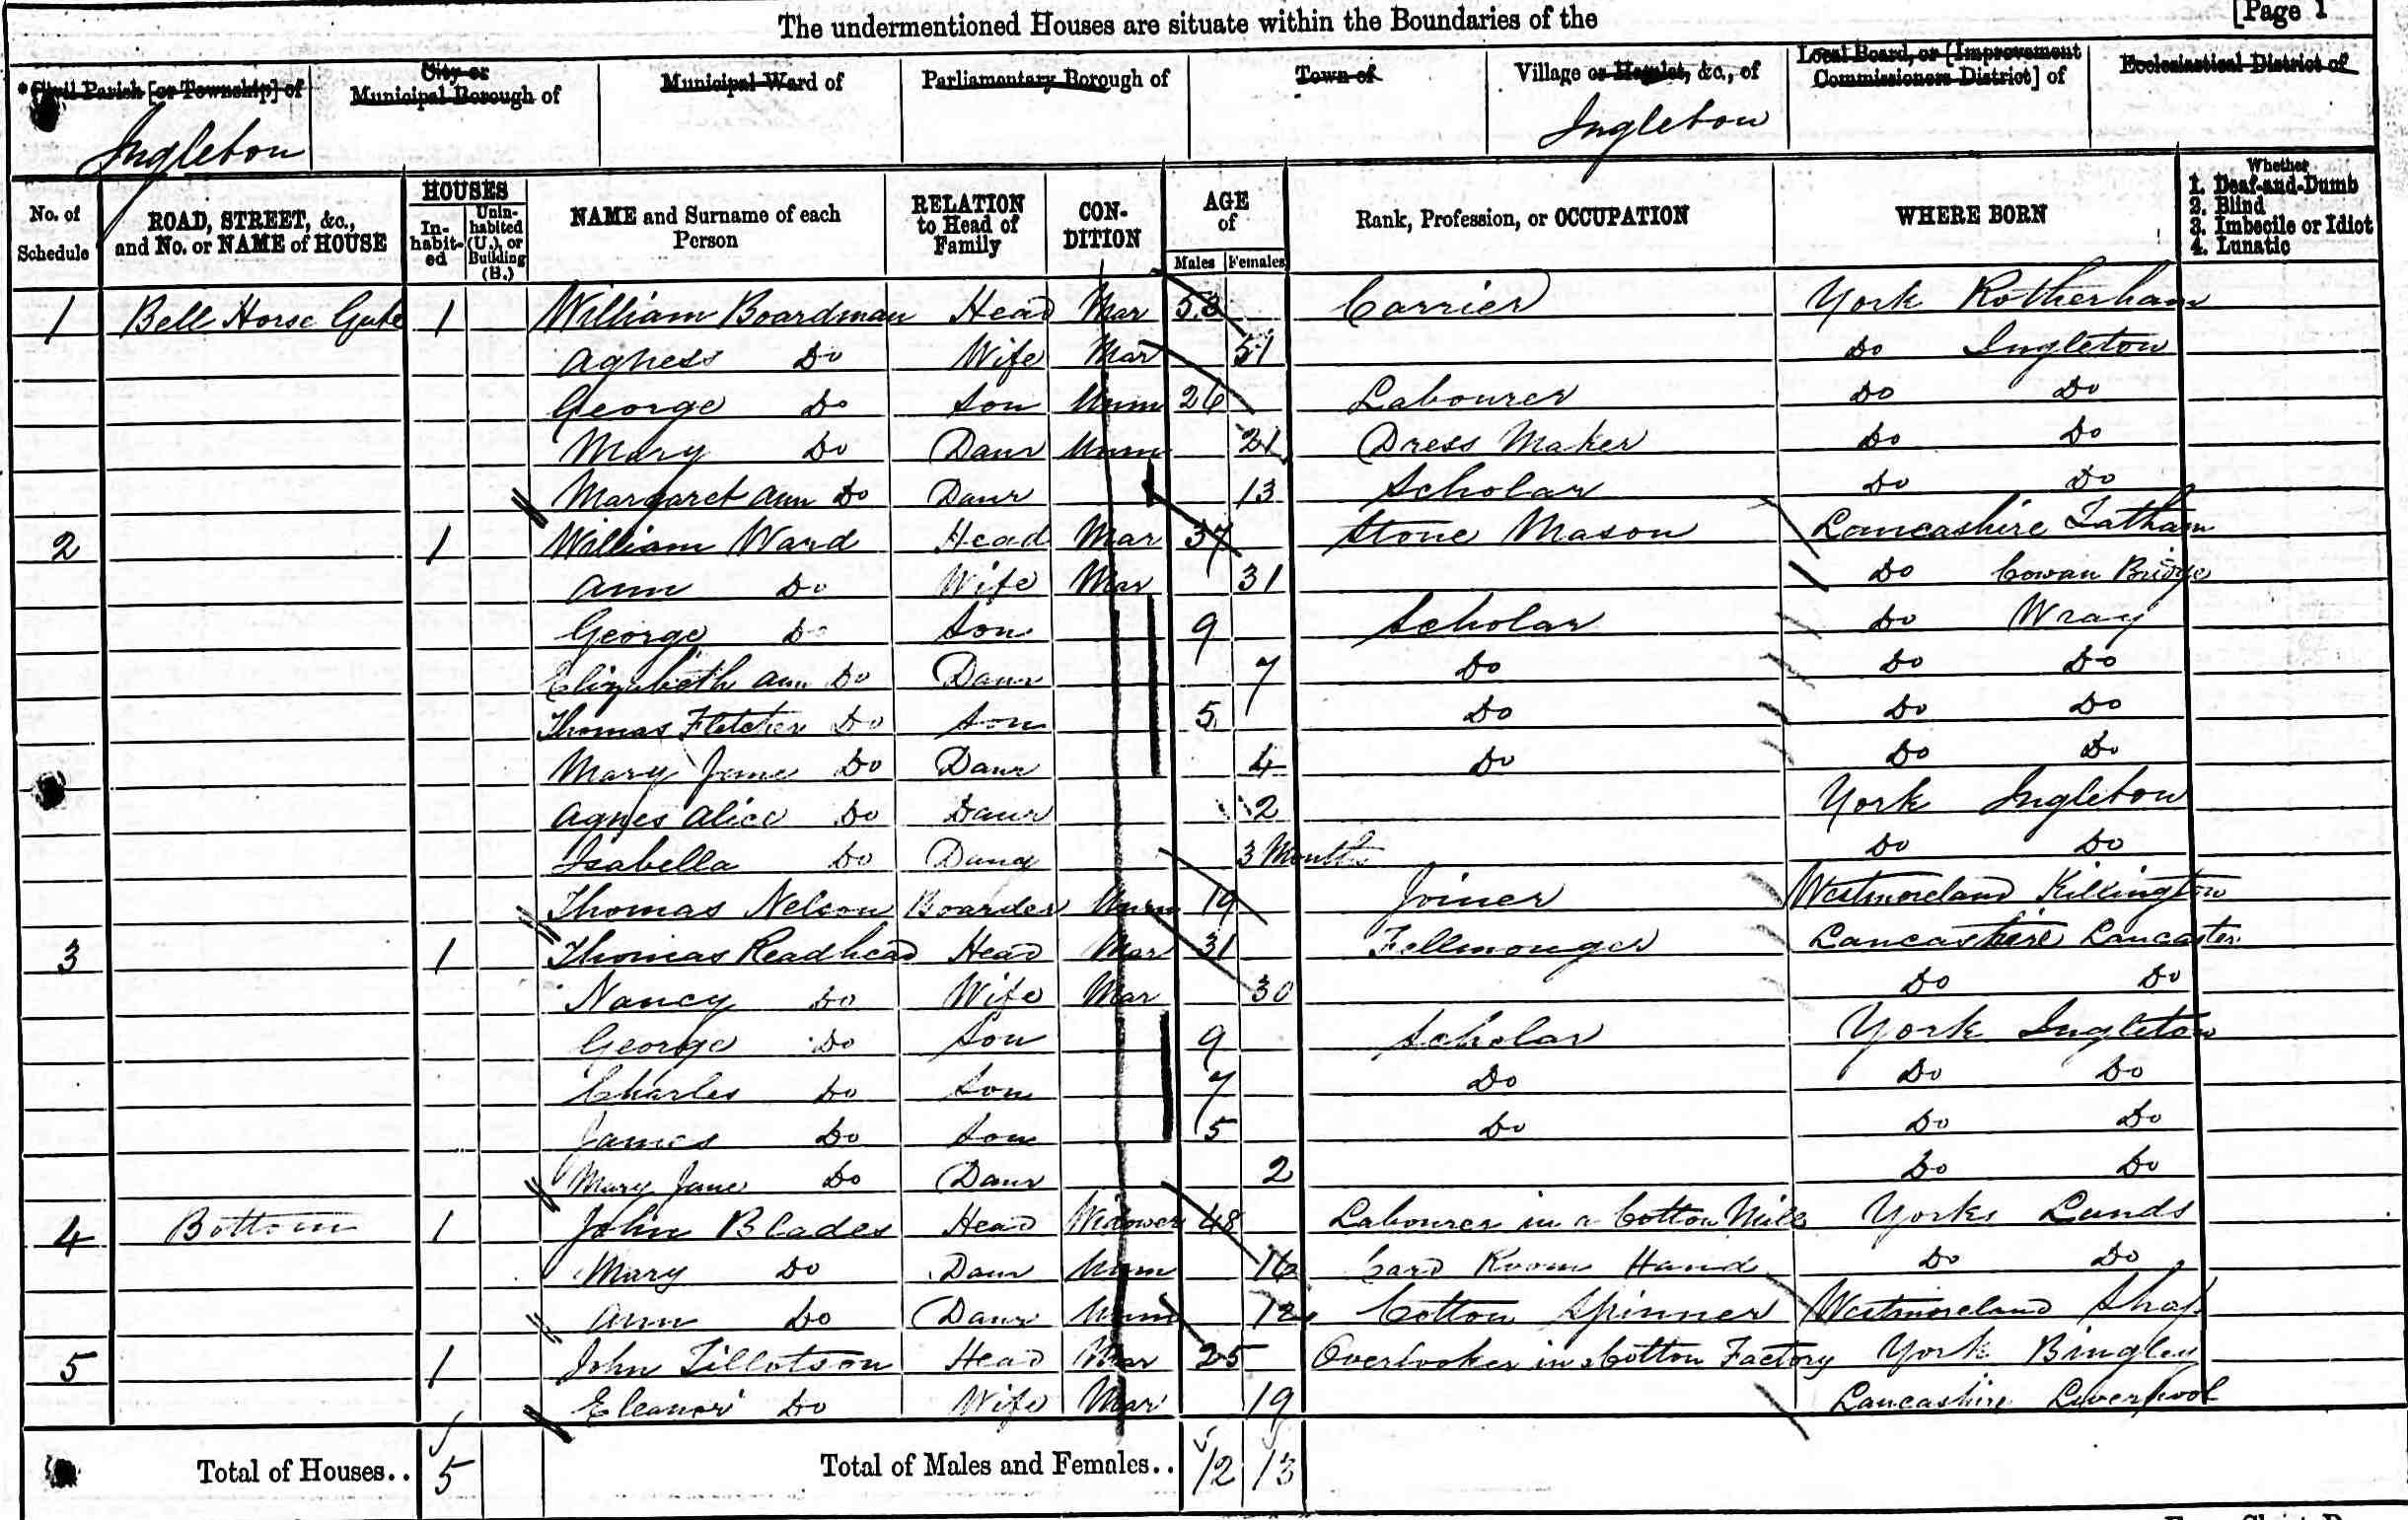 The undermentioned Houses are situate within the Boundaries of the
[Page 1
* Civil Parish [or Township] of
City or Municipal Borough of
Municipal Ward of
Parliamentary Borough of
Town of
Village or Hamlet, &c., of
Local Board, or [Improvement Commissioners District] of
Ecclesiastical District of
Ingleton
Ingleton
No. of Schedule
ROAD, STREET, &c., and No. or NAME of HOUSE
HOUSES
In-habit-ed
Unin-habited (U.), or Building (B.)
NAME and Surname of each Person
RELATION to Head of Family
CON-DITION
AGE of
Males
Females
Rank, Profession, or OCCUPATION
WHERE BORN
Whether
1. Deaf-and-Dumb
2. Blind
3. Imbecile or Idiot
4. Lunatic
1 Bell Horse Gate 1 William Boardman Head Mar 58 Carrier York Rotherham
Agness Do Wife Mar 51 Do Ingleton
George Do Son Unm 26 Labourer Do Do
Mary Do Daur Unm 21 Dress Maker Do Do
Margaret Ann Do Daur 13 Scholar Do Do
2 1 William Ward Head Mar 37 Stone Mason Lancashire Tatham
Ann Do Wife Mar 31 Do Cowan Bridge
George Do Son 9 Scholar Do Wray
Elizabeth Ann Do Daur 7 Do Do Do
Thomas Fletcher Do Son 5 Do Do Do
Mary Jane Do Daur 4 Do Do Do
Agnes Alice Do Daur 2 York Ingleton
Isabella Do Daur 3 Months Do Do
Thomas Nelson Boarder Unm 19 Joiner Westmoreland Killington
3 1 Thomas Readhead Head Mar 31 Fellmonger Lancashire Lancaster
Nancy Do Wife Mar 30 Do Do
George Do Son 9 Scholar York Ingleton
Charles Do Son 7 Do Do Do
James Do Son 5 Do Do Do
Mary Jane Do Daur 2 Do Do
4 Bottom 1 John Blades Head Widower 48 Labourer in a Cotton Mill Yorks Lunds
Mary Do Daur Unm 16 Card Room Hand Do Do
Ann Do Daur Unm 12 Cotton Spinner Westmoreland Shap
5 1 John Tillotson Head Mar 25 Overlooker in a Cotton Factory York Bingley
Eleanor Do Wife Mar 19 Lancashire Liverpool
Total of Houses.. 5
Total of Males and Females.. 12 13